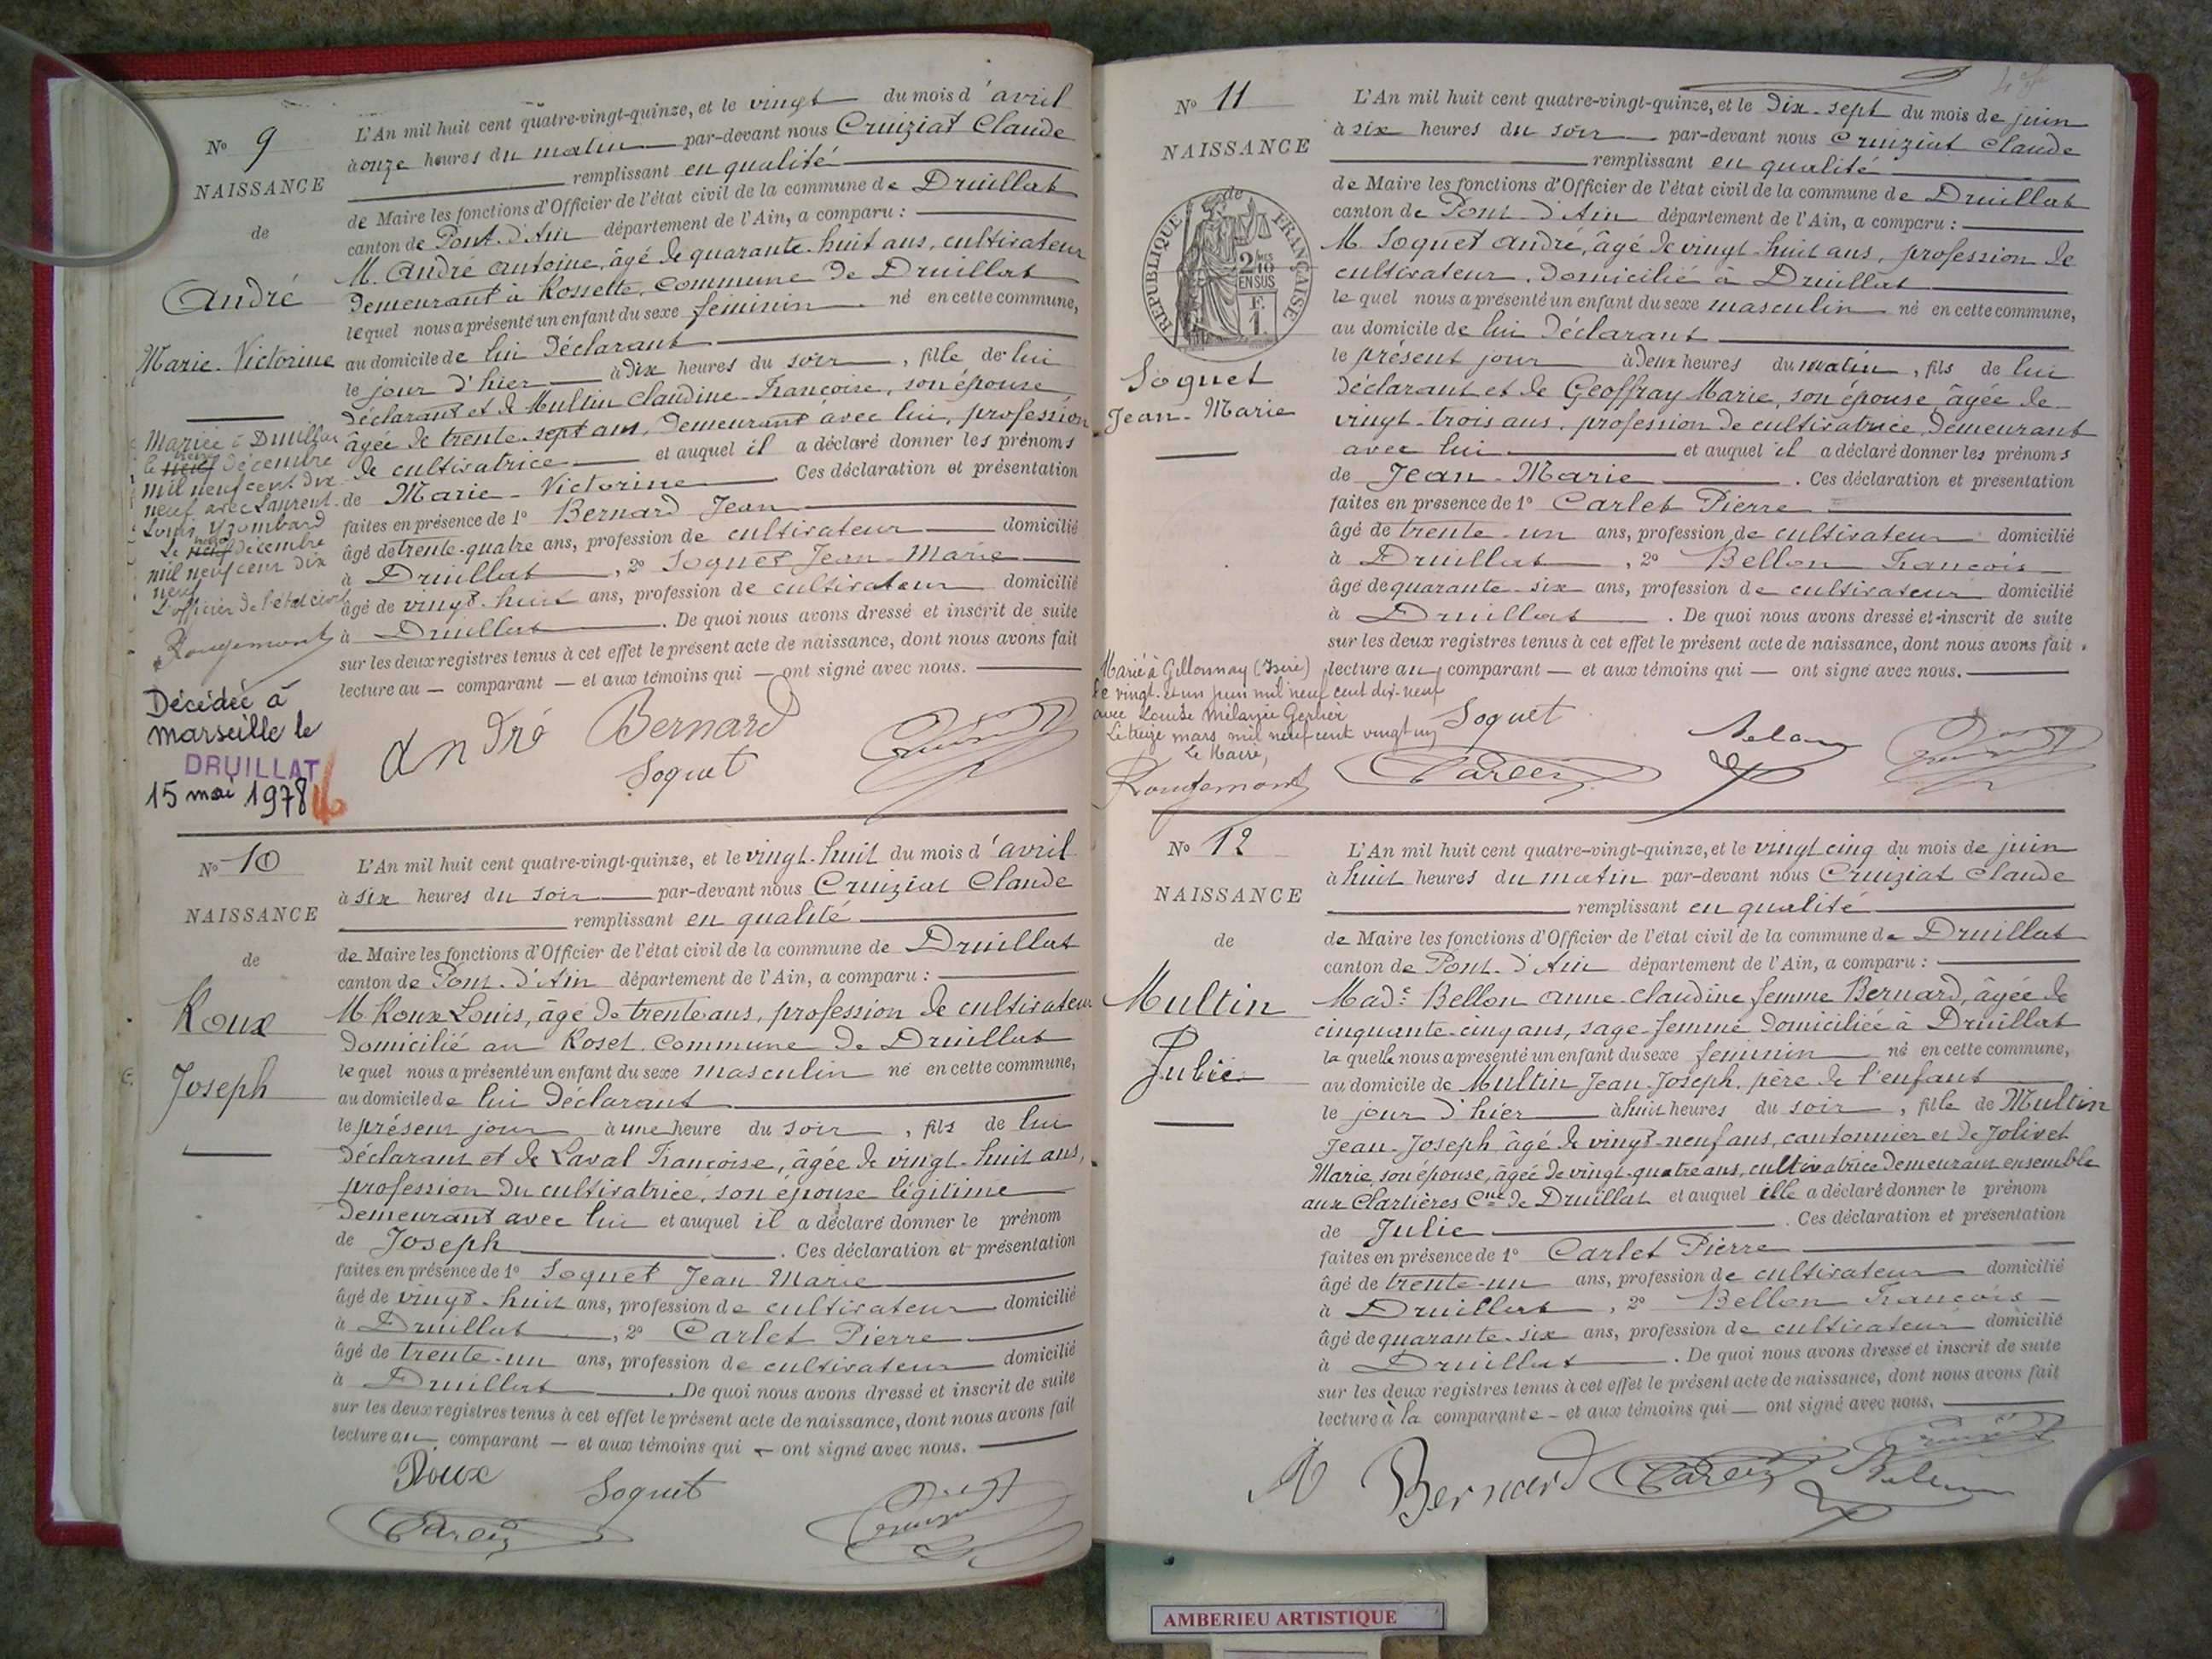 No 9
NAISSANCE
de
André
Marie-Victorine
L'An mil huit cent quatre-vingt-quinze, et le vingt du mois d'avril
à onze heures du matin par-devant nous Cruiziat Claude
remplissant en qualité
de Maire les fonctions d'Officier de l'état civil de la commune de Druillat
canton de Pont-d'Ain département de l'Ain, a comparu :
M. André Antoine, âgé de quarante-huit ans, cultivateur
demeurant à Rossette, commune de Druillat
lequel nous a présenté un enfant du sexe féminin né en cette commune,
au domicile de lui déclarant
le jour d'hier à dix heures du soir, fille de lui
déclarant et de Multin Claudine-Françoise, son épouse
âgée de trente-sept ans, demeurant avec lui, profession
de cultivatrice et auquel il a déclaré donner les prénoms
de Marie-Victorine Ces déclaration et présentation
faites en présence de 1° Bernard Jean
âgé de trente-quatre ans, profession de cultivateur domicilié
à Druillat, 2° Soquet Jean-Marie
âgé de vingt-huit ans, profession de cultivateur domicilié
à Druillat. De quoi nous avons dressé et inscrit de suite
sur les deux registres tenus à cet effet le présent acte de naissance, dont nous avons fait
lecture au — comparant — et aux témoins qui — ont signé avec nous.
Mariée à Druillat
le décembre
mil neuf cent dix
neuf avec Laurent
Louis Yzombard
Le décembre
mil neuf cent dix
neuf
L'officier de l'état civil
Rougemont
Décédée à
Marseille le
DRUILLAT
15 mai 1978
André Bernard
Soquet
No 10
NAISSANCE
de
Roux
Joseph
L'An mil huit cent quatre-vingt-quinze, et le vingt-huit du mois d'avril
à six heures du soir par-devant nous Cruiziat Claude
remplissant en qualité
de Maire les fonctions d'Officier de l'état civil de la commune de Druillat
canton de Pont-d'Ain département de l'Ain, a comparu :
M. Roux Louis, âgé de trente ans, profession de cultivateur
domicilié au Roset, commune de Druillat
lequel nous a présenté un enfant du sexe masculin né en cette commune,
au domicile de lui déclarant
le présent jour à une heure du soir, fils de lui
déclarant et de Laval Françoise, âgée de vingt-huit ans,
profession du cultivatrice, son épouse légitime
demeurant avec lui et auquel il a déclaré donner le prénom
de Joseph. Ces déclaration et présentation
faites en présence de 1° Soquet Jean-Marie
âgé de vingt-huit ans, profession de cultivateur domicilié
à Druillat, 2° Carlet Pierre
âgé de trente-un ans, profession de cultivateur domicilié
à Druillat. De quoi nous avons dressé et inscrit de suite
sur les deux registres tenus à cet effet le présent acte de naissance, dont nous avons fait
lecture au comparant — et aux témoins qui — ont signé avec nous.
Roux Soquet
No 11
NAISSANCE
de
RÉPUBLIQUE FRANÇAISE
2/10 EN SUS
F. 1.
Soquet
Jean-Marie
L'An mil huit cent quatre-vingt-quinze, et le dix-sept du mois de juin
à six heures du soir par-devant nous Cruiziat Claude
remplissant en qualité
de Maire les fonctions d'Officier de l'état civil de la commune de Druillat
canton de Pont-d'Ain département de l'Ain, a comparu :
M. Soquet André, âgé de vingt-huit ans, profession de
cultivateur, domicilié à Druillat
lequel nous a présenté un enfant du sexe masculin né en cette commune,
au domicile de lui déclarant
le présent jour à deux heures du matin, fils de lui
déclarant et de Geoffray Marie, son épouse âgée de
vingt-trois ans, profession de cultivatrice, demeurant
avec lui et auquel il a déclaré donner les prénoms
de Jean-Marie. Ces déclaration et présentation
faites en présence de 1° Carlet Pierre
âgé de trente-un ans, profession de cultivateur domicilié
à Druillat, 2° Bellon François
âgé de quarante-six ans, profession de cultivateur domicilié
à Druillat. De quoi nous avons dressé et inscrit de suite
sur les deux registres tenus à cet effet le présent acte de naissance, dont nous avons fait
lecture au comparant — et aux témoins qui — ont signé avec nous.
Marié à Gillonnay (Isère)
le vingt-et-un juin mil neuf cent dix-neuf
avec Louise Mélanie Gerlier
Le treize mars mil neuf cent vingt un
Le Maire,
Rougemont
Soquet
No 12
NAISSANCE
de
Multin
Julie
L'An mil huit cent quatre-vingt-quinze, et le vingt cinq du mois de juin
à huit heures du matin par-devant nous Cruiziat Claude
remplissant en qualité
de Maire les fonctions d'Officier de l'état civil de la commune de Druillat
canton de Pont-d'Ain département de l'Ain, a comparu :
Made Bellon Anne-Claudine femme Bernard, âgée de
cinquante-cinq ans, sage-femme domiciliée à Druillat
la quelle nous a présenté un enfant du sexe féminin né en cette commune,
au domicile de Multin Jean-Joseph, père de l'enfant
le jour d'hier à huit heures du soir, fille de Multin
Jean-Joseph âgé de vingt-neuf ans, cantonnier et de Jolivet
Marie, son épouse, âgée de vingt-quatre ans, cultivatrice demeurant ensemble
aux Clartières Cne de Druillat et auquel elle a déclaré donner le prénom
de Julie. Ces déclaration et présentation
faites en présence de 1° Carlet Pierre
âgé de trente-un ans, profession de cultivateur domicilié
à Druillat, 2° Bellon François
âgé de quarante-six ans, profession de cultivateur domicilié
à Druillat. De quoi nous avons dressé et inscrit de suite
sur les deux registres tenus à cet effet le présent acte de naissance, dont nous avons fait
lecture à la comparante — et aux témoins qui — ont signé avec nous.
Bernard
AMBERIEU ARTISTIQUE